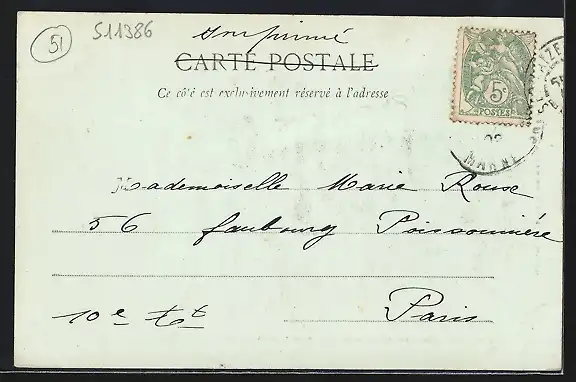 51
S11386
Imprimé
CARTE POSTALE
Ce côté est exclusivement réservé à l'adresse
5c
POSTES
MARNE
Mademoiselle Marie Rouse
56 faubourg Poissonnière
10e
Paris